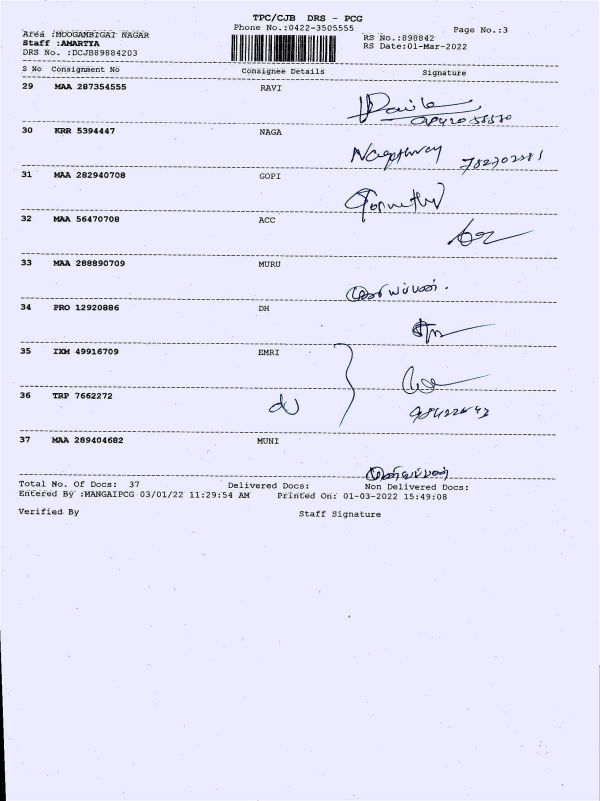 TPC/CJB DRS - PCG
Area :MOOGAMBIGAI NAGAR Phone No.:0422-3505555 Page No.:3
Staff :AMARTYA RS No.:898842
DRS No. :DCJB89884203 RS Date:01-Mar-2022
S No Consignment No Consignee Details Signature
29 MAA 287354555 RAVI
30 KRR 5394447 NAGA
31 MAA 282940708 GOPI
32 MAA 56470708 ACC
33 MAA 288890709 MURU
34 PRO 12920886 DH
35 IXM 49916709 EMRI
36 TRP 7662272
37 MAA 289404682 MUNI
Total No. Of Docs: 37 Delivered Docs: Non Delivered Docs:
Entered By :MANGAIPCG 03/01/22 11:29:54 AM Printed On: 01-03-2022 15:49:08
Verified By Staff Signature